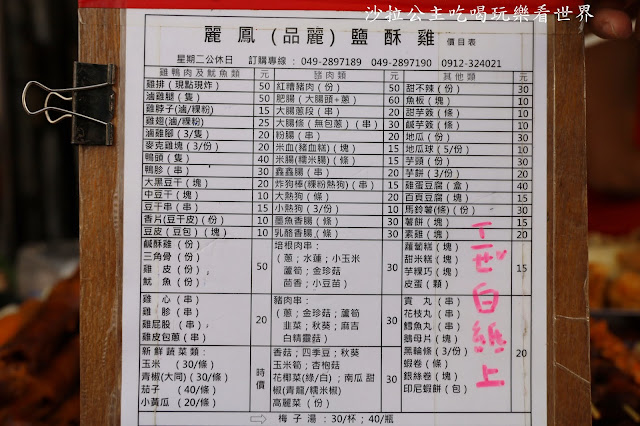 沙拉公主吃喝玩樂看世界
麗鳳(品麗)鹽酥雞 價目表
星期二公休日 訂購專線: 049-2897189 049-2897190 0912-324021
雞鴨肉及魷魚類 元 豬肉類 元 其他類 元
雞排(現點現炸) 50 紅糟豬肉(份) 50 甜不辣(份) 30
滷雞腿(隻) 50 肥腸(大腸頭+蔥) 60 魚板(塊) 10
雞脖子(滷/粿粉) 15 大腸蔥段(串) 20 甜芋簽(條) 10
雞翅(滷/粿粉) 25 大腸條(無包蔥)(串) 30 鹹芋簽(條) 10
滷雞腳(3/隻) 20 粉腸(串) 20 地瓜(份) 30
麥克雞塊(3/份) 20 米血(豬血糕)(塊) 15 地瓜球(5/份) 10
鴨頭(隻) 40 米腸(糯米腸)(條) 15 芋頭(份) 30
鴨胗(串) 30 鑫鑫腸(串) 20 芋餅(3/份) 20
大黑豆干(塊) 20 炸狗棒(粿粉熱狗)(串) 15 雞蛋豆腐(盒) 40
中豆干(塊) 10 大熱狗(條) 20 百頁豆腐(塊) 20
豆干串(串) 15 小熱狗(3/份) 10 馬鈴薯(條)(份) 30
香片(豆干皮)(份) 10 墨魚香腸(條) 30 薯餅(塊) 15
豆皮(豆包)(塊) 10 乳酪香腸(條) 30 素雞(塊) 20
鹹酥雞(份) 培根肉串: 蘿蔔糕(塊)
三角骨(份) 50 (蔥;水蓮;小玉米 30 甜米糕(塊) 15
雞皮(份) 蘆筍;金珍菇 芋粿巧(塊)
魷魚(份) 茴香;小豆苗) 皮蛋(顆)
雞心(串) 豬肉串: 貢丸(串)
雞胗(串) 20 (蔥;金珍菇;蘆筍 30 花枝丸(串) 20
雞屁股(串) 韭菜;秋葵;麻吉 鱈魚丸(串)
雞皮包蔥(串) 白精靈菇) 鵝母片(塊)
新鮮蔬菜類: 時價 香菇;四季豆;秋葵 30 黑輪條(3/份)
玉米(30/條) 玉米筍;杏柏菇 蝦卷(條)
青椒(大同)(30/條) 花椰菜(綠/白);南瓜 甜 銀絲卷(塊)
茄子(40/條) 椒(青龍/糯米椒) 印尼蝦餅(包)
小黃瓜(20/條) 高麗菜(份)
梅子湯: 30/杯; 40/瓶